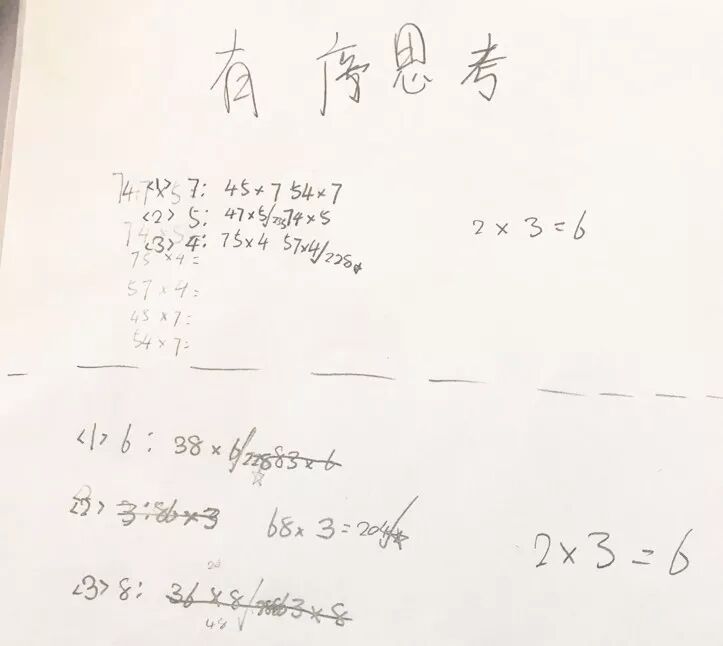 有序思考
<1> 7: 45×7 54×7
<2> 5: 47×5/235 74×5
<3> 4: 75×4 57×4/228
75×4=
57×4=
45×7=
54×7=
2×3=6
<1> 6: 38×6/228 83×6
<2> 3: 86×3 68×3=204
<3> 8: 36×8/288 63×8
48
2×3=6